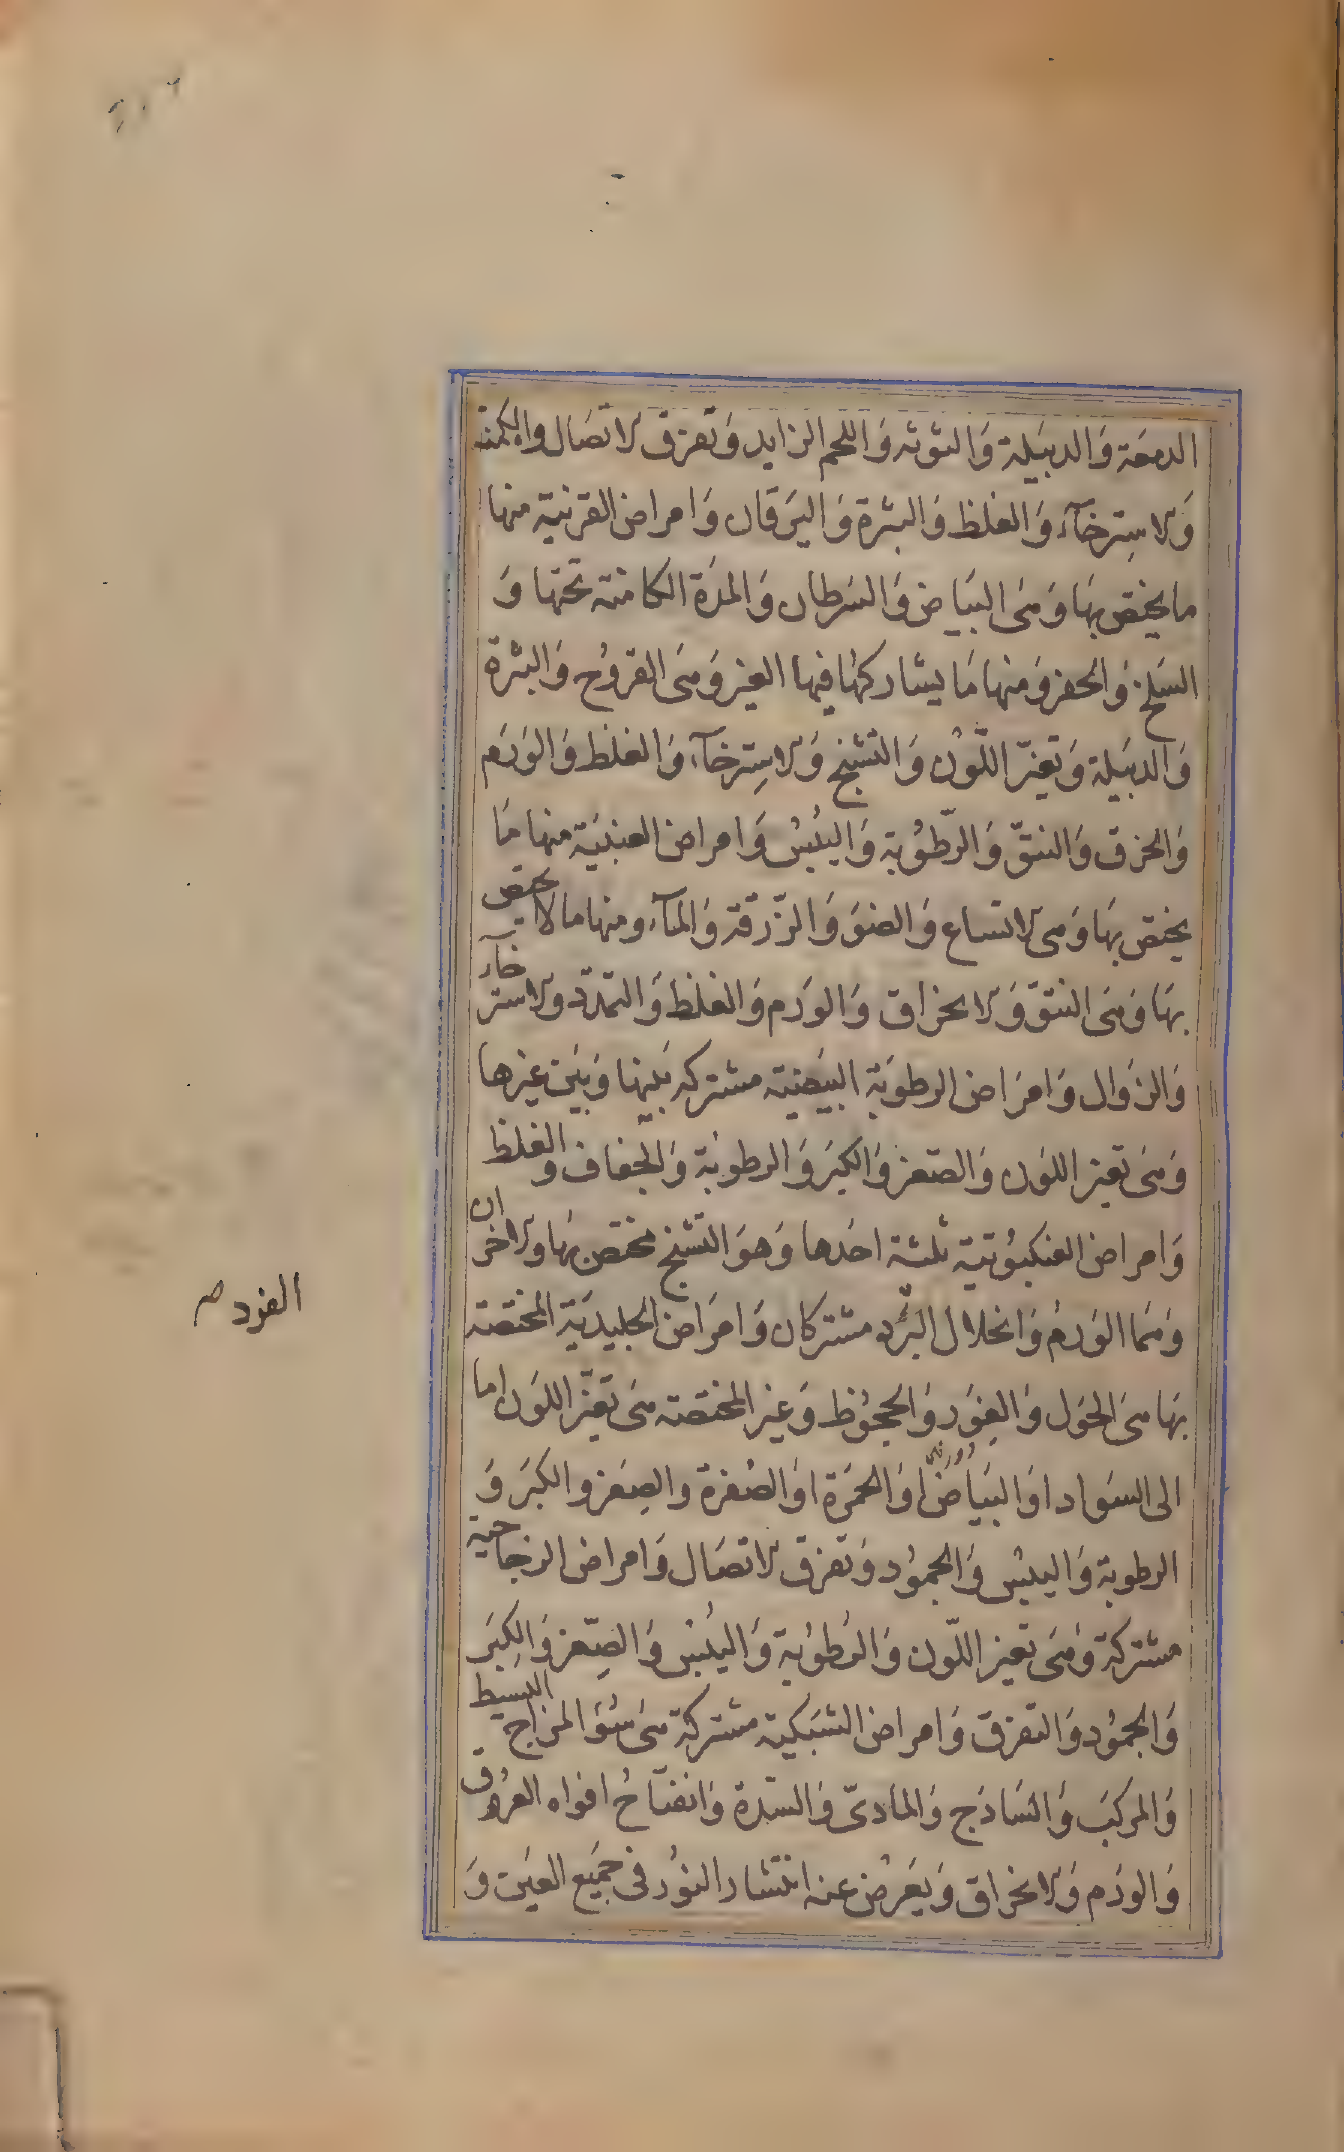 الدمعة وَالدبَيلة وَالتوثه وَاللحم الزايد وَتفرق الاتصَال والكمنة
وَالاسِترخآء وَالغلظ وَالبثرة وَاليَرقان وَامراض القرنية منها
ما يختص بهَا وَهىَ البيَاض وَالسَرطان وَالمدَة الكامنة تحتها وَ
السَلخ وَالحفر وَمنها مَا يشاركهَا فيها الغير وَهىَ القروُح وَالبثرة
وَالدبَيلة وَتغيّر اللّوُن وَالتشنج وَالاسِترخآء وَالغلظ وَالوَرَم
وَالخرق وَالنتوّ وَالرّطوُبة وَاليُبسُ وَامراض العنبَية منها مَا
يختص بهَا وَهى الاتساع وَالضيق وَالزّرقة وَالمآء ومنها ما لا يختص
بهَا وَهىَ النتوّ وَالانخراق وَالوَرَم وَالغلظ وَالتمدّد والاسترخآء
وَالزوَال وَامرَاض الرطوَبة البيَضية مشتركه بَينها وَبيَن غيرها
وَهىَ تغير اللوَن وَالصّغر وَالكبَر وَالرطوبَة وَالجفاف والغلظ
وَامراض العنكبوُتية ثلثة احَدها وَهوَ التشنج مختص بهَا والاخران
وَهمَا الوَرمُ وَانحلال الفرد مشتركان وَامرَاض الجليديَة المختصة
بهَا هىَ الحَول وَالغوَر وَالجحوُظ وَغير المختصة هىَ تغيّر اللوَن اما
الى السوَاد اوَ البيَاض اوَ الحمَرة اوَ الصُفرة والصِغر والكبَر وَ
الرطوبة وَاليبسُ وَالجموُد وَتفرق الاتصَال وَامراض الزجاجية
مشتركة وَهىَ تغير اللّون وَالرَطوُبة وَاليُبسُ وَالصِّغر وَالكِبَر
وَالجموُد وَالتفرق وَامراض الشبَكية مشتركة هىَ سُوَ المزاج البسيط
وَالمركبَ وَالسَاذج وَالمَادىّ وَالسّدة وَانفتَاحُ افواه العرُوق
وَالورَم وَالانخراق وَيَعرُض عنه انتشار النوُر فى جميَع العيَن وَ
الفرد صح